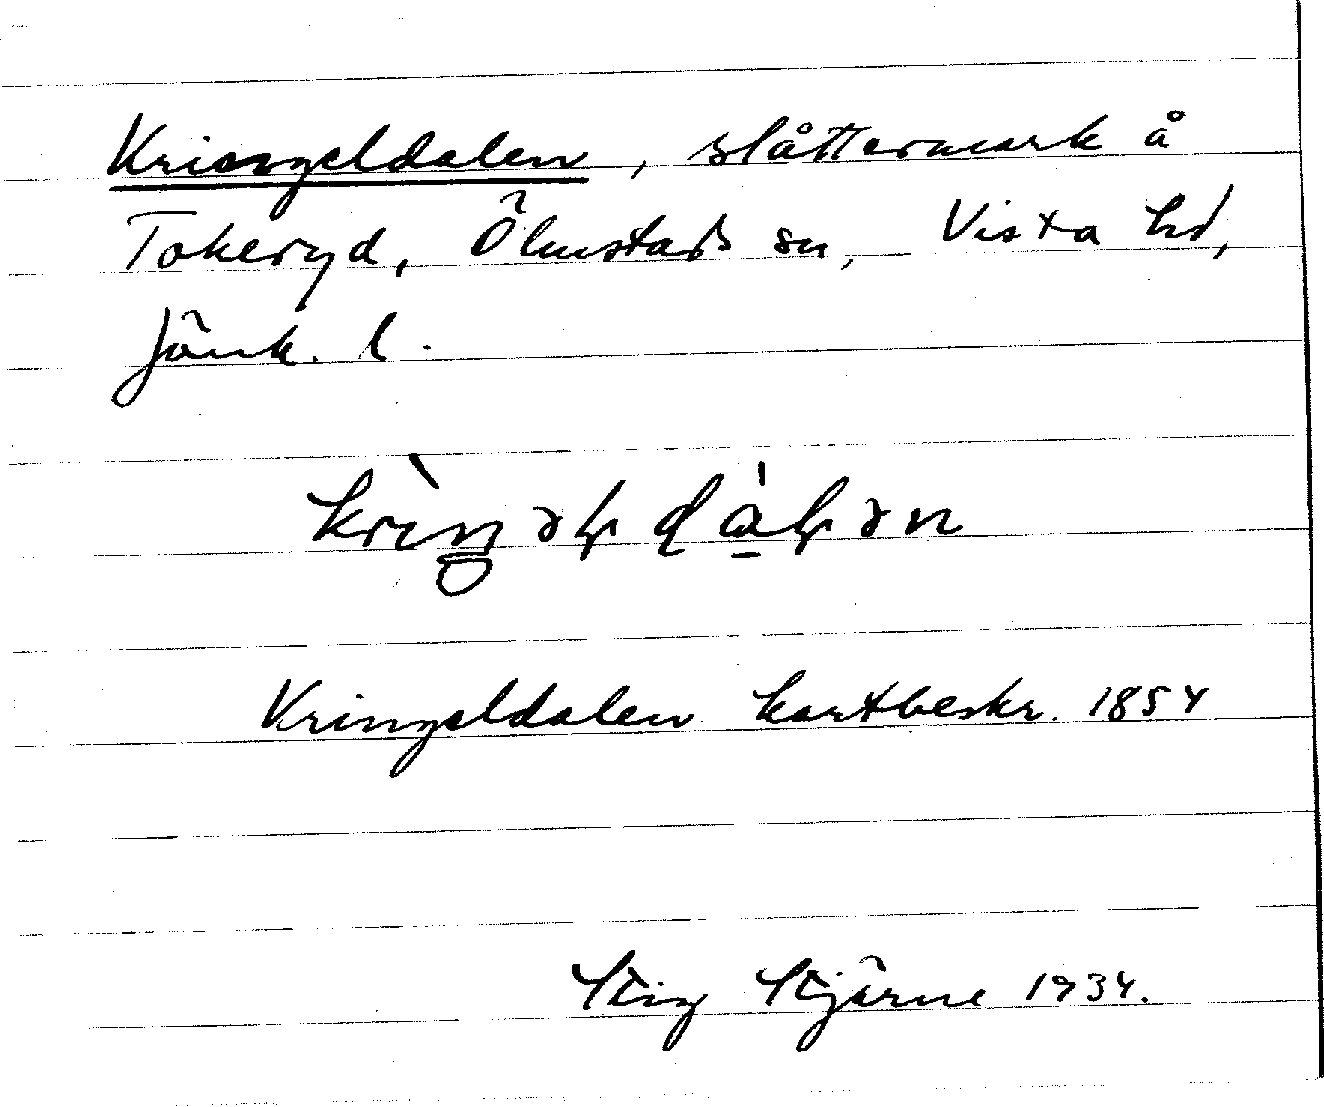 Kringeldalen, slåttermark å
Tokeryd, Ölmstads sn, Vista hd,
Jönk. l.
krìŋəɭdàɭən
Kringeldalen kartbeskr. 1854
Stig Stjärne 1934.